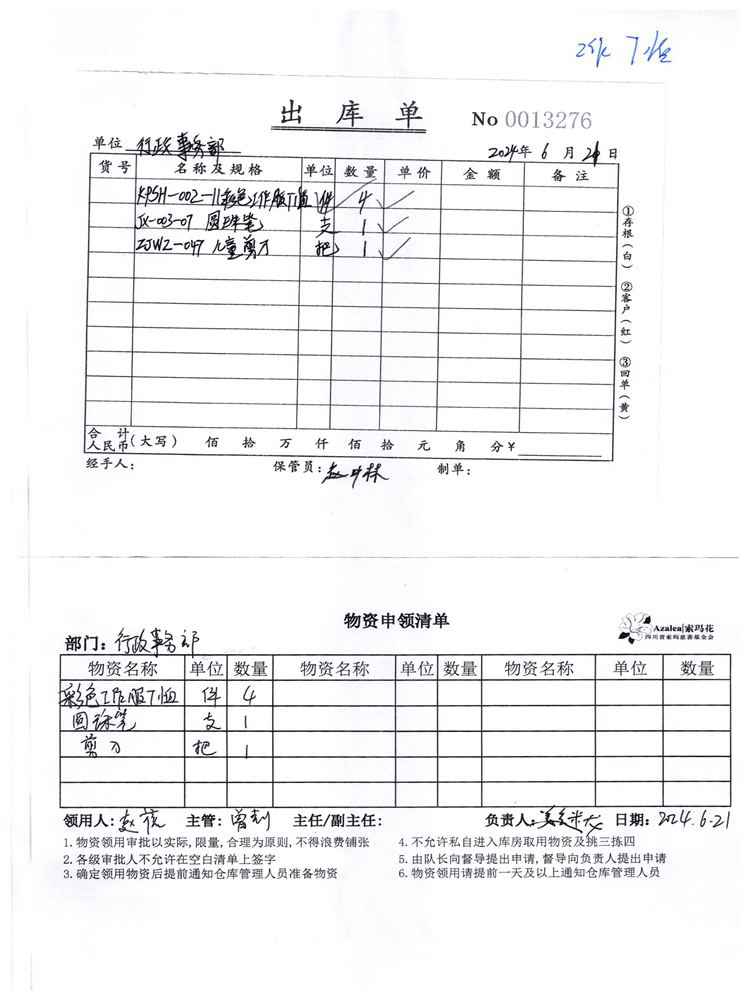 T恤
出库单
No 0013276
单位 行政事务部
2024年 6 月 21 日
货号 名称及规格 单位 数量 单价 金额 备注
KPSH-002-11 彩色工作服T恤 件 4
JX-003-07 圆珠笔 支 1
ZJWZ-047 儿童剪刀 把 1
①存根(白) ②客户(红) ③回单(黄)
合计
人民币(大写) 佰 拾 万 仟 佰 拾 元 角 分 ¥
经手人: 保管员: 制单:
物资申领清单
Azalea|索玛花
四川省索玛慈善基金会
部门: 行政事务部
物资名称 单位 数量 物资名称 单位 数量 物资名称 单位 数量
彩色工作服T恤 件 4
圆珠笔 支 1
剪刀 把 1
领用人: 主管: 主任/副主任: 负责人: 日期: 2024.6.21
1. 物资领用审批以实际, 限量, 合理为原则, 不得浪费铺张
4. 不允许私自进入库房取用物资及挑三拣四
2. 各级审批人不允许在空白清单上签字
5. 由队长向督导提出申请, 督导向负责人提出申请
3. 确定领用物资后提前通知仓库管理人员准备物资
6. 物资领用请提前一天及以上通知仓库管理人员